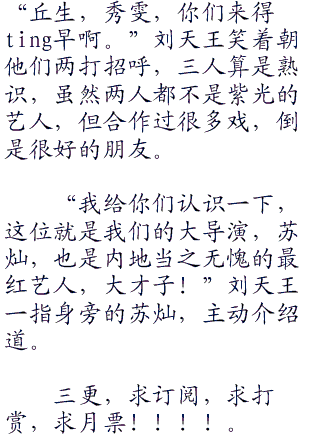 “丘生，秀雯，你们来得
ting早啊。”刘天王笑着朝
他们两打招呼，三人算是熟
识，虽然两人都不是紫光的
艺人，但合作过很多戏，倒
是很好的朋友。
“我给你们认识一下，
这位就是我们的大导演，苏
灿，也是内地当之无愧的最
红艺人，大才子！”刘天王
一指身旁的苏灿，主动介绍
道。
三更，求订阅，求打
赏，求月票！！！！。